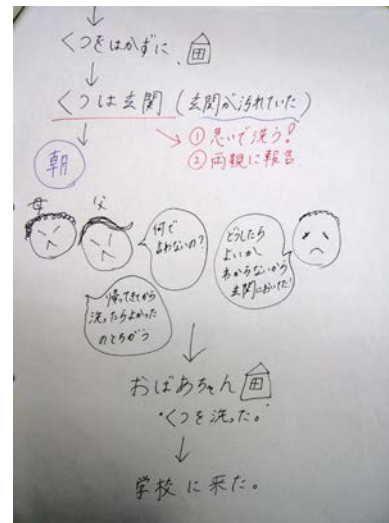 くつをはかずに
くつは玄関（玄関が汚れていた）
①急いで洗う！
②両親に報告
朝
母
父
何で
よわないの？
どうしたら
よいか
わからないから
玄関においてた！
帰ってきてから
洗ったらよかった
のとちがう
おばあちゃん
・くつを洗った。
学校に来た。